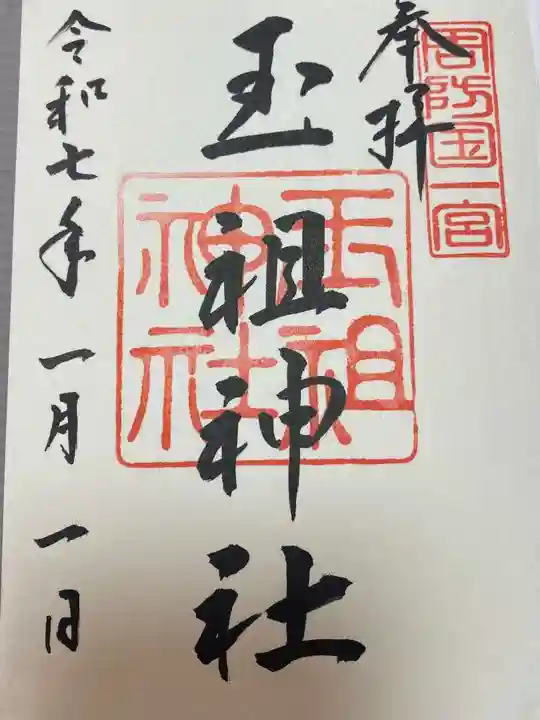 周防国一宮
奉拝
玉祖神社
玉祖
神社
令和七年 一月 一日